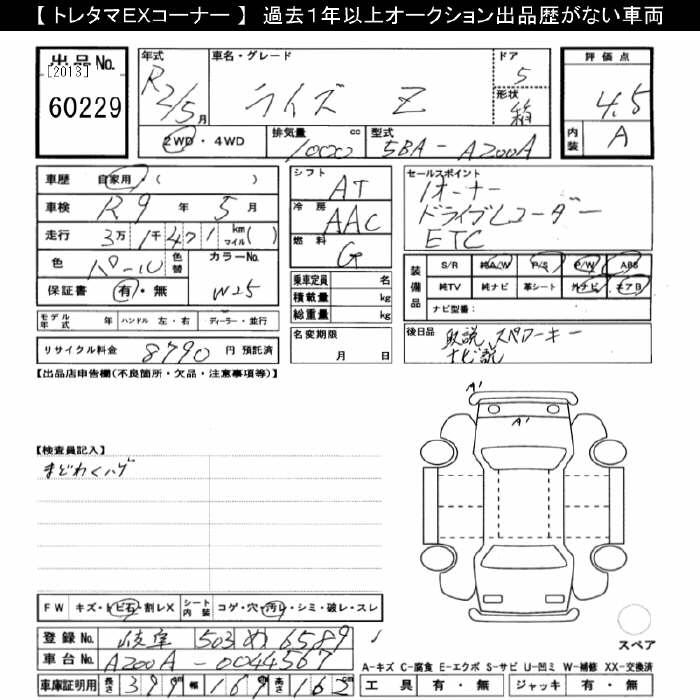 【 トレタマEXコーナー 】 過去１年以上オークション出品歴がない車両
出品No.
[2013]
60229
年式
R2/5月
車名・グレード
ライズ Z
ドア
5
形状
箱
評価点
4.5
内装
A
2WD・4WD
排気量
1000
cc
型式
5BA-A200A
車歴 自家用・( )
車検 R9 年 5 月
走行 3万1千471 km マイル( )
色 パール
色替
カラーNo.
W25
保証書 有・無
モデル年式 年 ハンドル 左・右 ディーラー・並行
リサイクル料金 8790 円 預託済
シフト AT
冷房 AAC
燃料 G
乗車定員 名
積載量 kg
総重量 kg
名変期限
月 日
セールスポイント
1オーナー
ドライブレコーダー
ETC
装備品
S/R 純A/W P/S P/W ABS
純TV 純ナビ 革シート 外ナビ エアB
ナビ型番:
後日品
取説、スペアーキー
ナビ説
【出品店申告欄(不良箇所・欠品・注意事項等)】
【検査員記入】
まどわくハゲ
A1
A1
FW キズ・トビ石・割レX
シート内装 コゲ・穴・汚レ・シミ・破レ・スレ
登録No. 岐阜 503 め 6589
車台No. A200A-0044567
車庫証明用 長さ 399 幅 169 高さ 162
スペア
A-キズ C-腐食 E-エクボ S-サビ U-凹ミ W-補修 XX-交換済
工具 有・無 ジャッキ 有・無